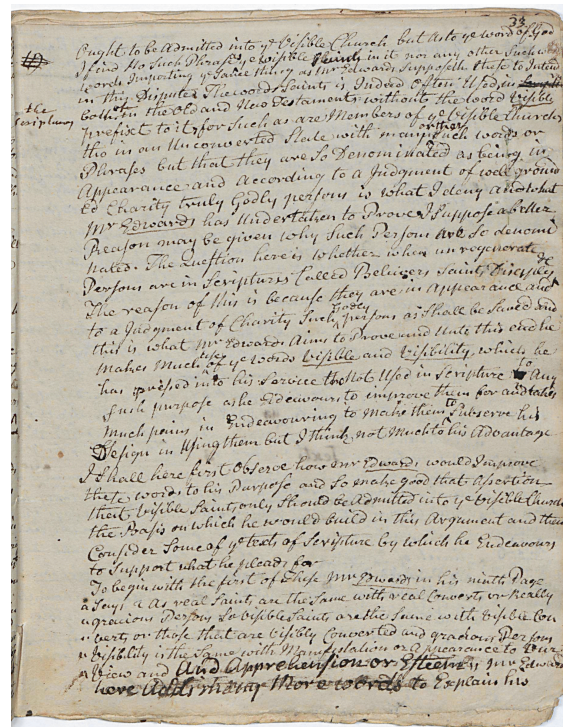 33
ought to be Admitted into ye Visible Church but as to ye word of God
I find No Such Phrase as visible Saints in it nor any other Such
words Importing ye Same thing as Mr Edwards Supposeth these to Intend
in this Dispute. The word Saints is Indeed often Used in
the Scriptures
both in the Old and New Testaments without the word Visible
prefixt to it, for Such as are Members of ye Visible Church
tho in an Unconverted State with many other Such words or
Phrases but that they are So Denominated as being in
Appearance and According to a Judgment of well ground
ed Charity truly Godly persons is what I deny and what
Mr Edwards has Undertaken to Prove I Suppose a better
Reason may be given why Such Persons are So denomi
nated. The Question here is whether when unregenerate
Persons are in Scriptures Called Believers Saints Disciples &c
The reason of this is because they are in Appearance and
to a Judgment of Charity Such Godly persons as Shall be Saved and
this is what Mr Edwards Aims to Prove and Unto this end he
makes Much use of ye words visible and visibility which he
has pressed into his Service tho Not Used in Scripture to Any
Such purpose as he Endeavours to improve them for and takes
much pains in Endeavouring to make them to Subserve his
Design in Using them but I think not Much to his Advantage
I Shall here first Observe how Mr Edwards would Improve
these words to his Purpose and So make good that Assertion
that Visible Saints only Should be Admitted into ye Visible Church
the Basis on which he would build in this Argument and then
Consider Some of ye texts of Scripture by which he Endeavours
to Support what he pleads for
To begin with the first of these Mr Edwards in his ninth Page
Says As real Saints are the Same with real Converts or Really
gracious Persons So visible Saints are the Same with Visible Con
verts or those that are Visibly Converted and gracious Persons
Visibility is the Same with Manifestation or Appearance to Our
View and And Apprehension or Esteem Mr Edwards
here Adds many More words to Explain his